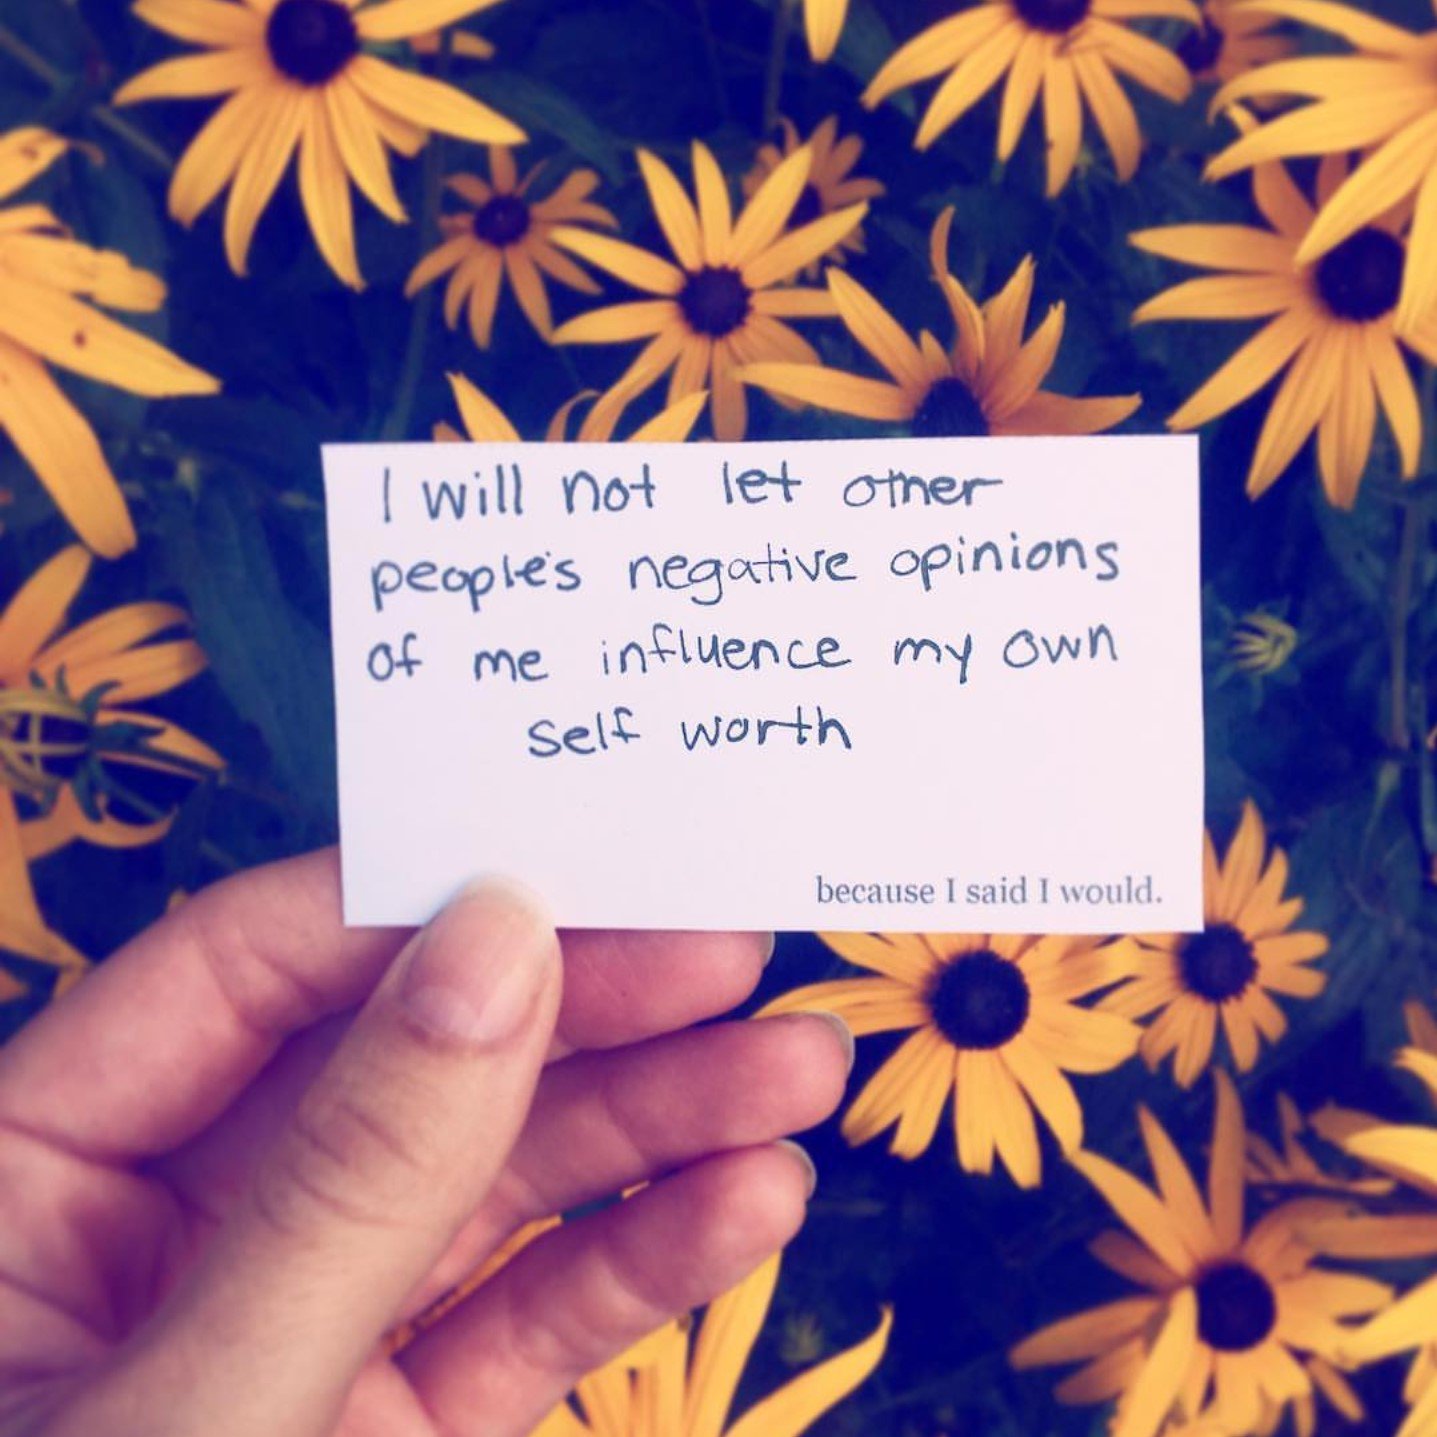 I will not let other
people's negative opinions
of me influence my own
self worth
because I said I would.